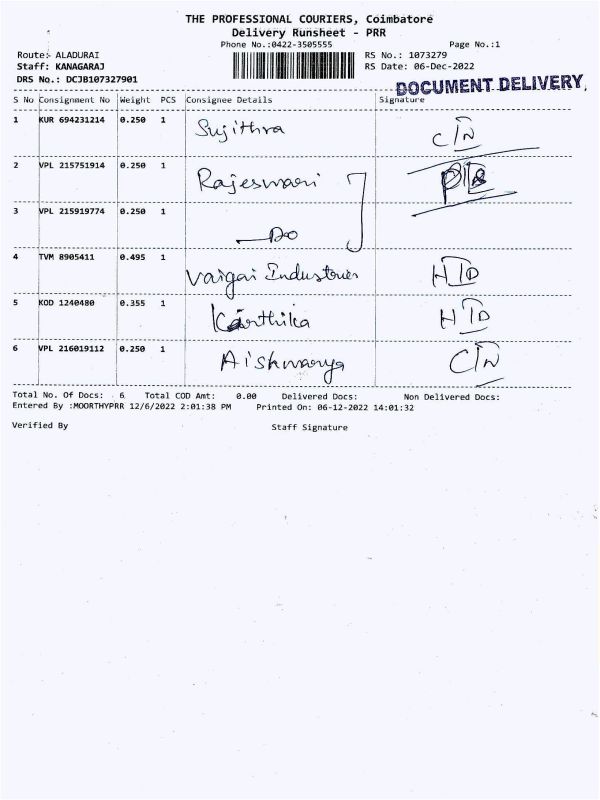 THE PROFESSIONAL COURIERS, Coimbatore
Delivery Runsheet - PRR
Phone No.:0422-3505555 Page No.:1
Route: ALADURAI RS No.: 1073279
Staff: KANAGARAJ RS Date: 06-Dec-2022
DRS No.: DCJB107327901
DOCUMENT DELIVERY,
S No Consignment No Weight PCS Consignee Details Signature
1 KUR 694231214 0.250 1 Sujithra C/N
2 VPL 215751914 0.250 1 Rajeswari
3 VPL 215919774 0.250 1 Do
4 TVM 8905411 0.495 1 Vaigai Industries HTD
5 KOD 1240480 0.355 1 Karthika HTD
6 VPL 216019112 0.250 1 Aishwarya C/N
Total No. Of Docs: 6 Total COD Amt: 0.00 Delivered Docs: Non Delivered Docs:
Entered By :MOORTHYPRR 12/6/2022 2:01:38 PM Printed On: 06-12-2022 14:01:32
Verified By Staff Signature